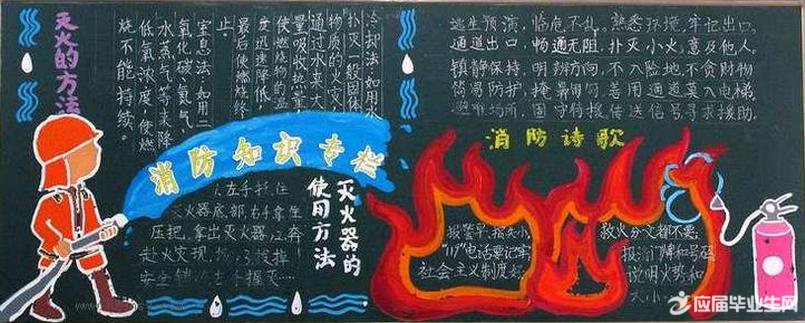 灭火的方法
冷却法:如用水
扑灭一般固体
物质的火灾,
通过水来大
量吸收热量,
使燃烧物的温
度迅速降低,
最后使燃烧终
止。
窒息法:如用二
氧化碳、氮气、
水蒸气等来降
低氧浓度,使燃
烧不能持续。
逃生预演,临危不乱。熟悉环境,牢记出口。
通道出口,畅通无阻。扑灭小火,惠及他人。
镇静保持,明辨方向,不入险地,不贪财物
简易防护,掩鼻匍匐。善用通道,莫入电梯
避难场所,固守待援。传送信号,寻求援助。
消防知识专栏
消防诗歌
灭火器的
使用方法
左手扶住
灭火器底部,右手拿
压把,拿出灭火器,2.奔
赴火实现
安全销 左手握
报警早,损失小,
"119"电话要记牢
社会主义制度好,
救火分文都不要。
报清门牌和号码
说明火势和
大小
应届毕业生网